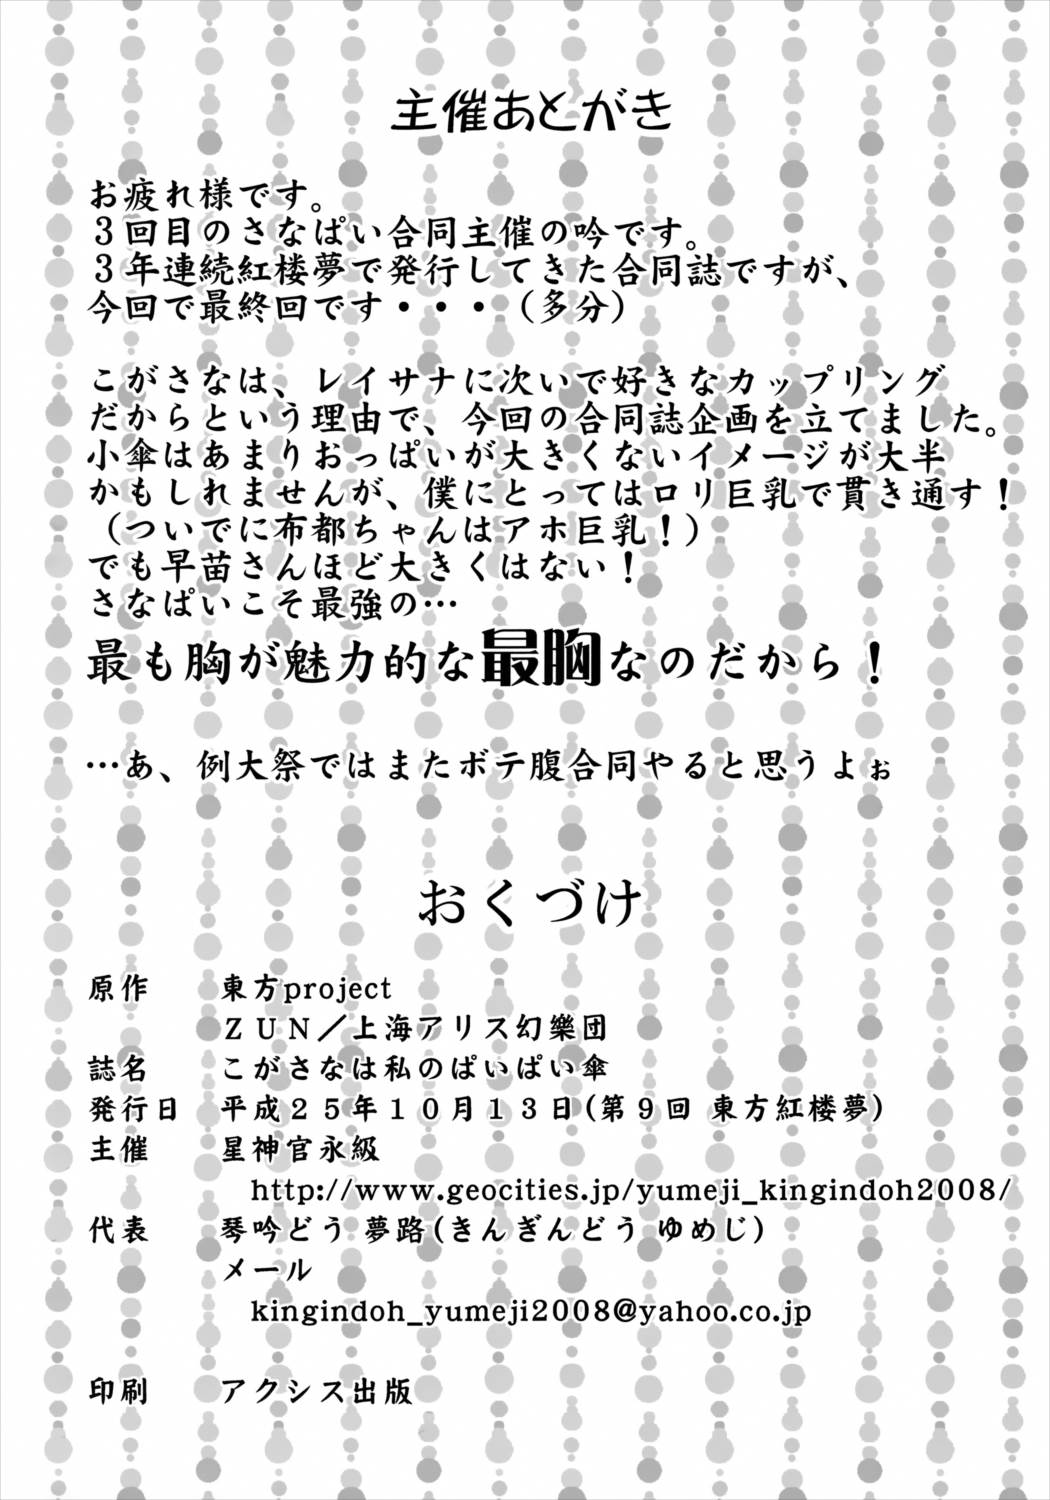 主催あとがき
お疲れ様です。
３回目のさなぱい合同主催の吟です。
３年連続紅楼夢で発行してきた合同誌ですが、
今回で最終回です・・・（多分）
こがさなは、レイサナに次いで好きなカップリング
だからという理由で、今回の合同誌企画を立てました。
小傘はあまりおっぱいが大きくないイメージが大半
かもしれませんが、僕にとってはロリ巨乳で貫き通す！
（ついでに布都ちゃんはアホ巨乳！）
でも早苗さんほど大きくはない！
さなぱいこそ最強の…
最も胸が魅力的な最胸なのだから！
…あ、例大祭ではまたボテ腹合同やると思うよぉ
おくづけ
原作 東方project
ＺＵＮ／上海アリス幻樂団
誌名 こがさなは私のぱいぱい傘
発行日 平成２５年１０月１３日(第９回 東方紅楼夢)
主催 星神官永級
http://www.geocities.jp/yumeji_kingindoh2008/
代表 琴吟どう 夢路(きんぎんどう ゆめじ)
メール
kingindoh_yumeji2008@yahoo.co.jp
印刷 アクシス出版